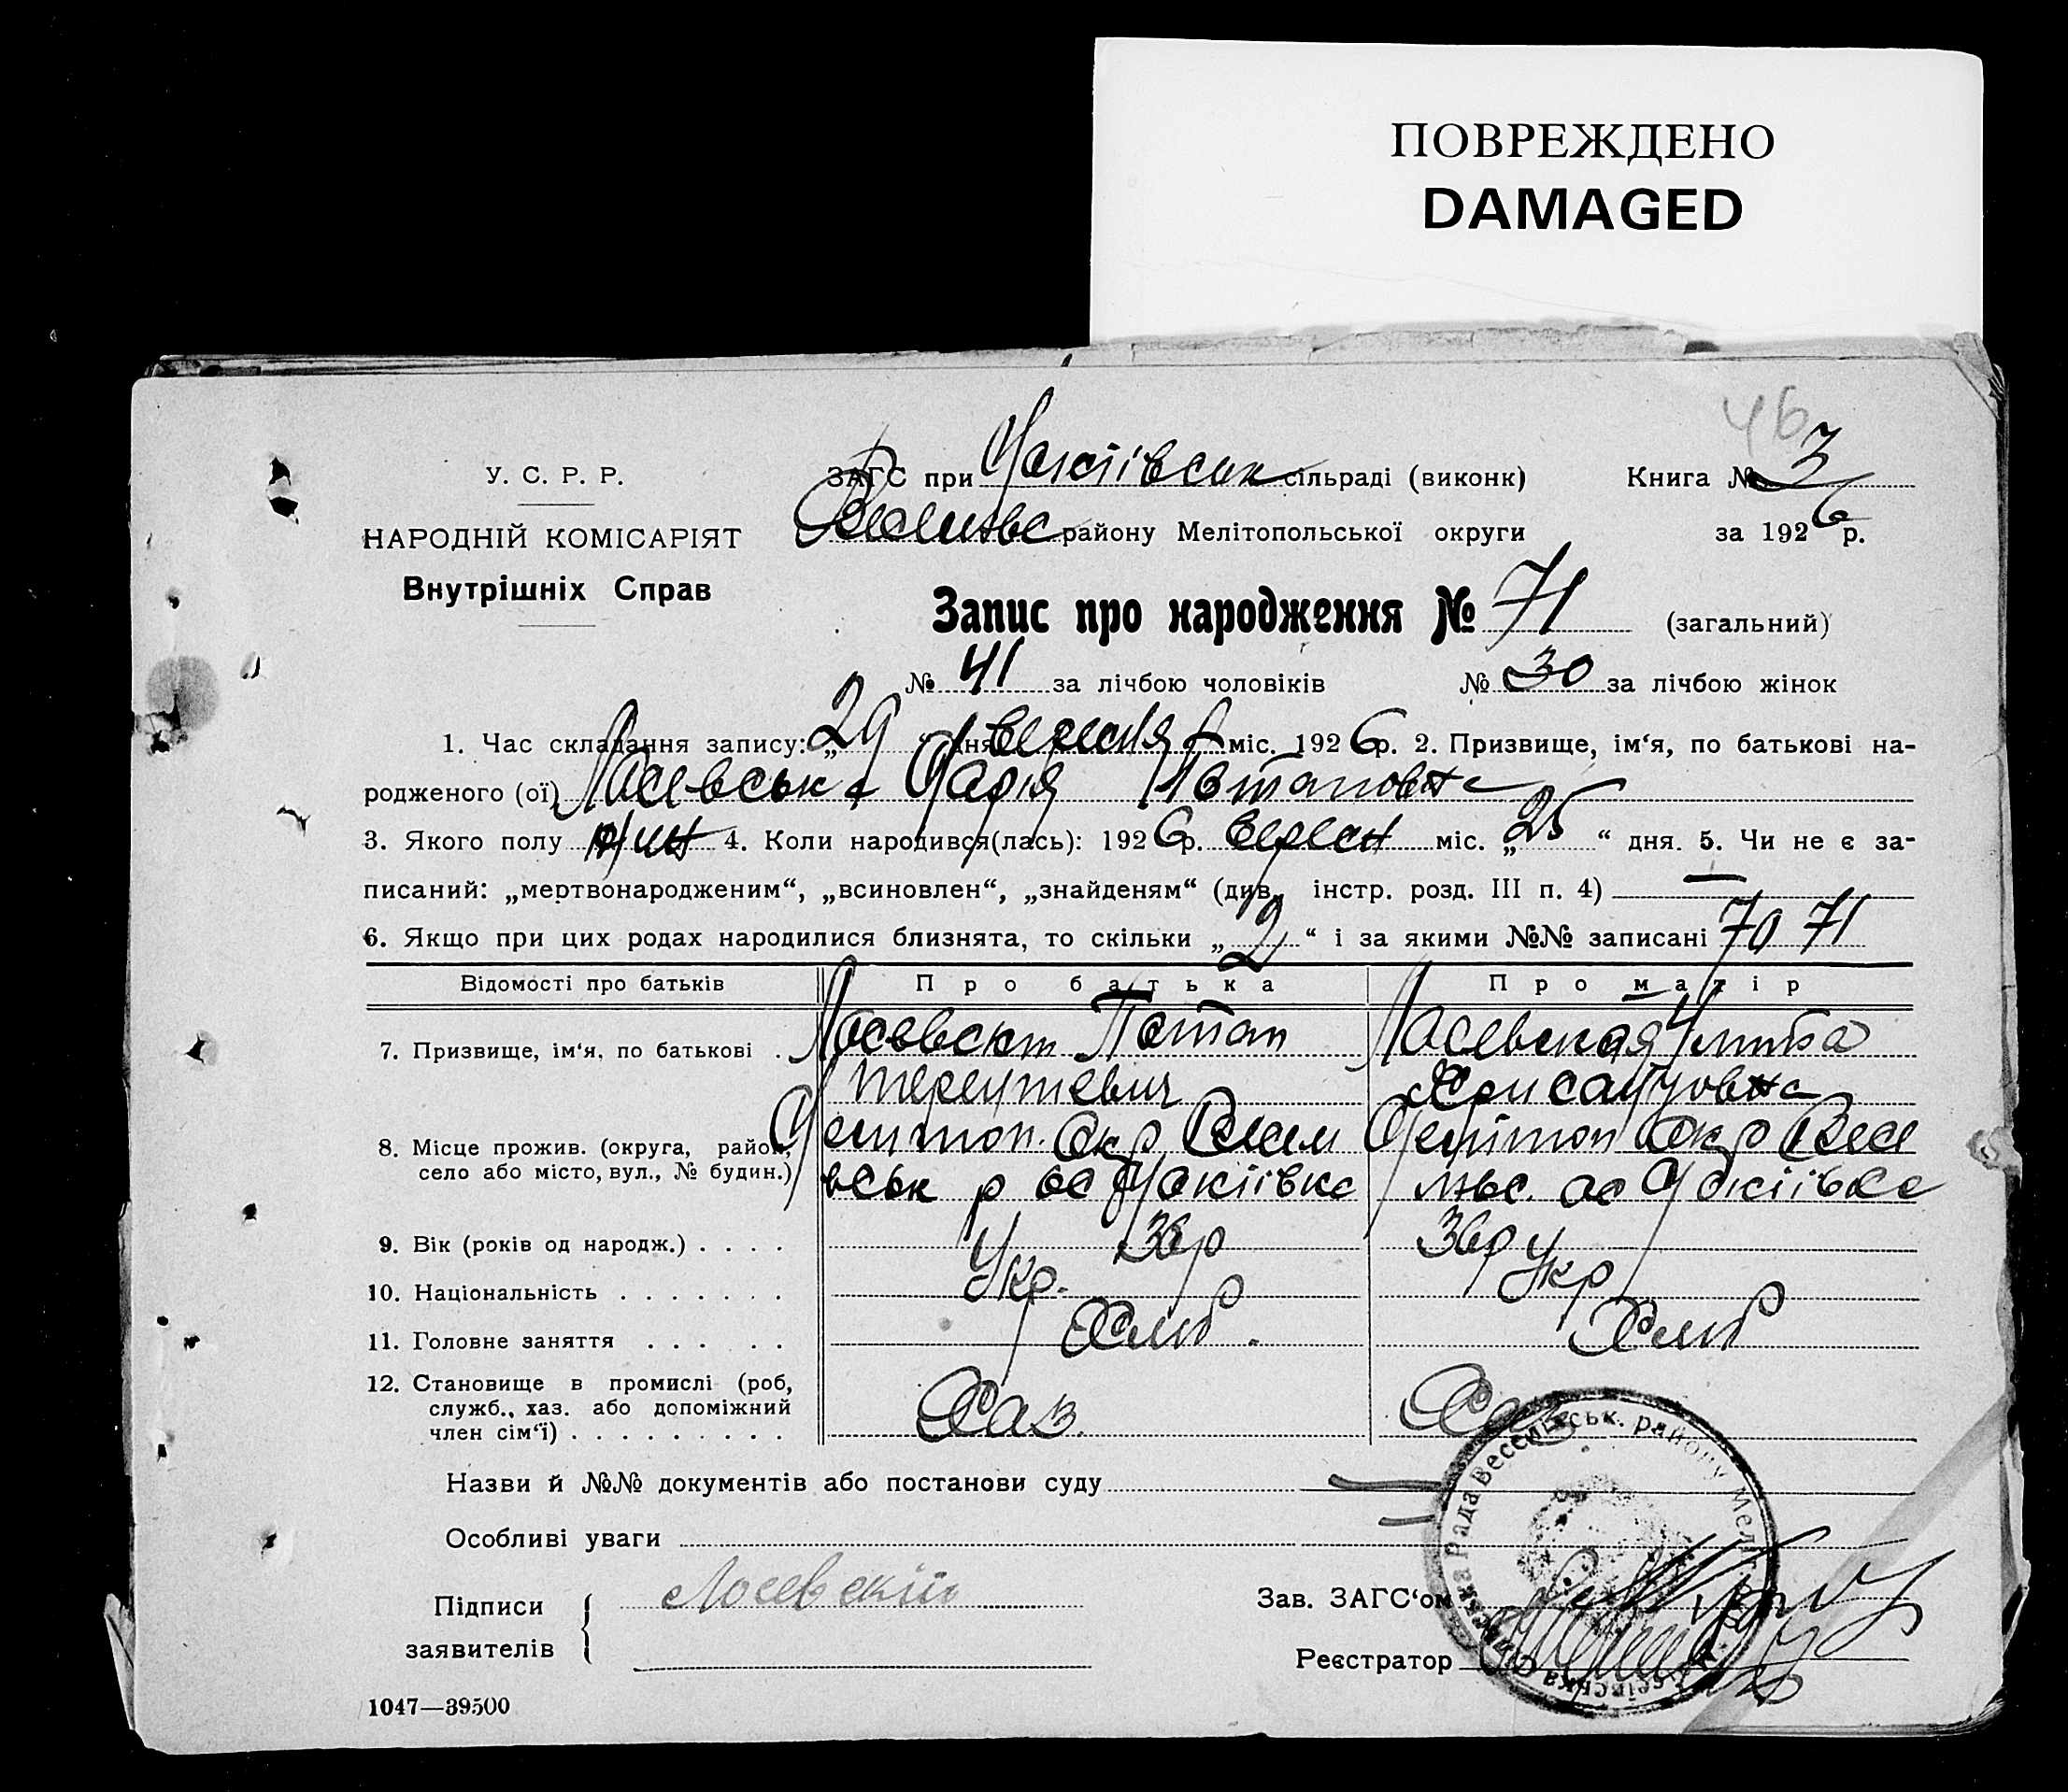 ПОВРЕЖДЕНО
DAMAGED
46
У. С. Р. Р.
НАРОДНІЙ КОМІСАРІЯТ
Внутрішніх Справ
ЗАГС при сільраді (виконк) Книга № 3
району Мелітопольської округи за 1926 р.
Запис про народження № 71 (загальний)
№ 41 за лічбою чоловіків № 30 за лічбою жінок
1. Час складання запису: „29“ дня вересня міс. 1926 р. 2. Призвище, ім‘я, по батькові на-
родженого (ої) Лосевська Марія Потаповна
3. Якого полу жин 4. Коли народився(лась): 1926 р. вересн міс. „25“ дня. 5. Чи не є за-
писаний: „мертвонародженим“, „всиновлен“, „знайденям“ (див. інстр. розд. III п. 4) —
6. Якщо при цих родах народилися близнята, то скільки „2“ і за якими №№ записані 70 71
Відомості про батьків Про батька Про матір
7. Призвище, ім‘я, по батькові . Потап Лосевская
8. Місце прожив. (округа, район, село або місто, вул., № будин.) Мелітоп. Окр Весел Мелітоп Окр Весе
вськ р
9. Вік (років од народж.) . . . . 36 р 36 р
10. Національність . . . . . . . Укр. Укр
11. Головне заняття . . . . . Хліб. Хліб
12. Становище в промислі (роб, служб., хаз. або допоміжний член сім‘ї) . . . . . . . . . Хаз. Хаз
Назви й №№ документів або постанови суду —
Особливі уваги —
Підписи заявителів { Лосевскій
Зав. ЗАГС‘ом
Реєстратор
Рада Веселівськ. району Меліт
1047—39500